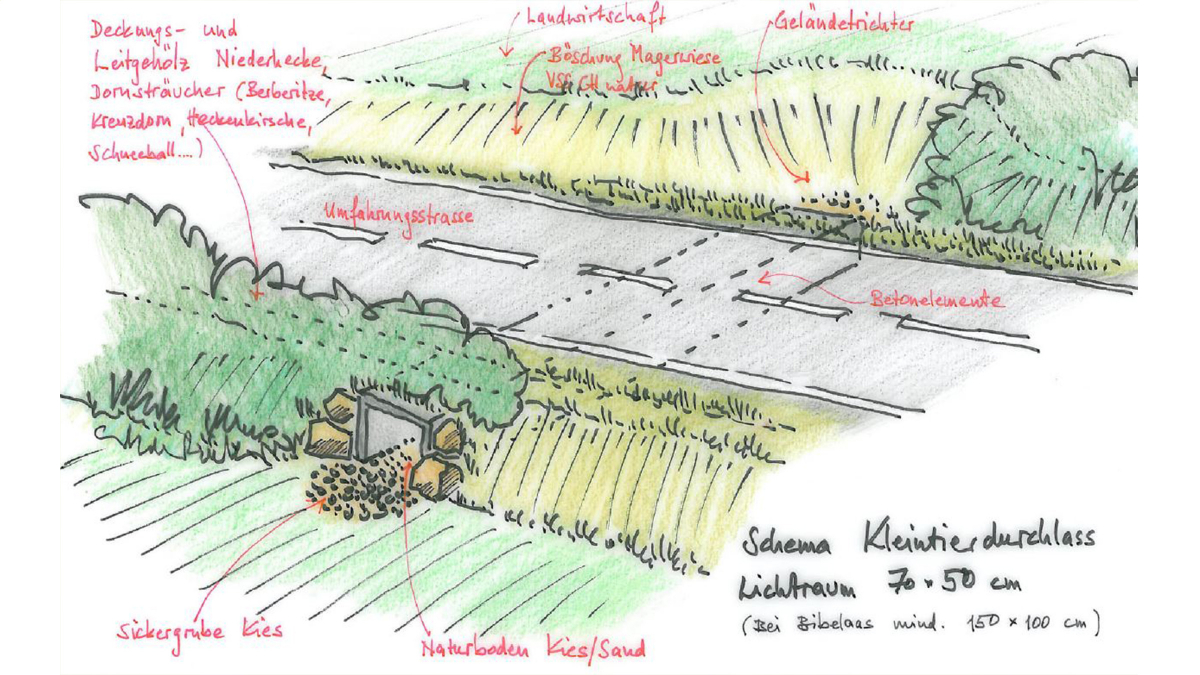 Deckungs- und
Leitgehölz Niederhecke,
Dornsträucher (Berberitze,
Kreuzdorn, Heckenkirsche,
Schneeball....)
Landwirtschaft
Böschung Magerwiese
VSS CH
Geländetrichter
Umfahrungsstrasse
Betonelemente
Sickergrube Kies
Naturboden Kies/Sand
Schema Kleintierdurchlass
Lichtraum 70 × 50 cm
(Bei Bibelaas mind. 150 × 100 cm)